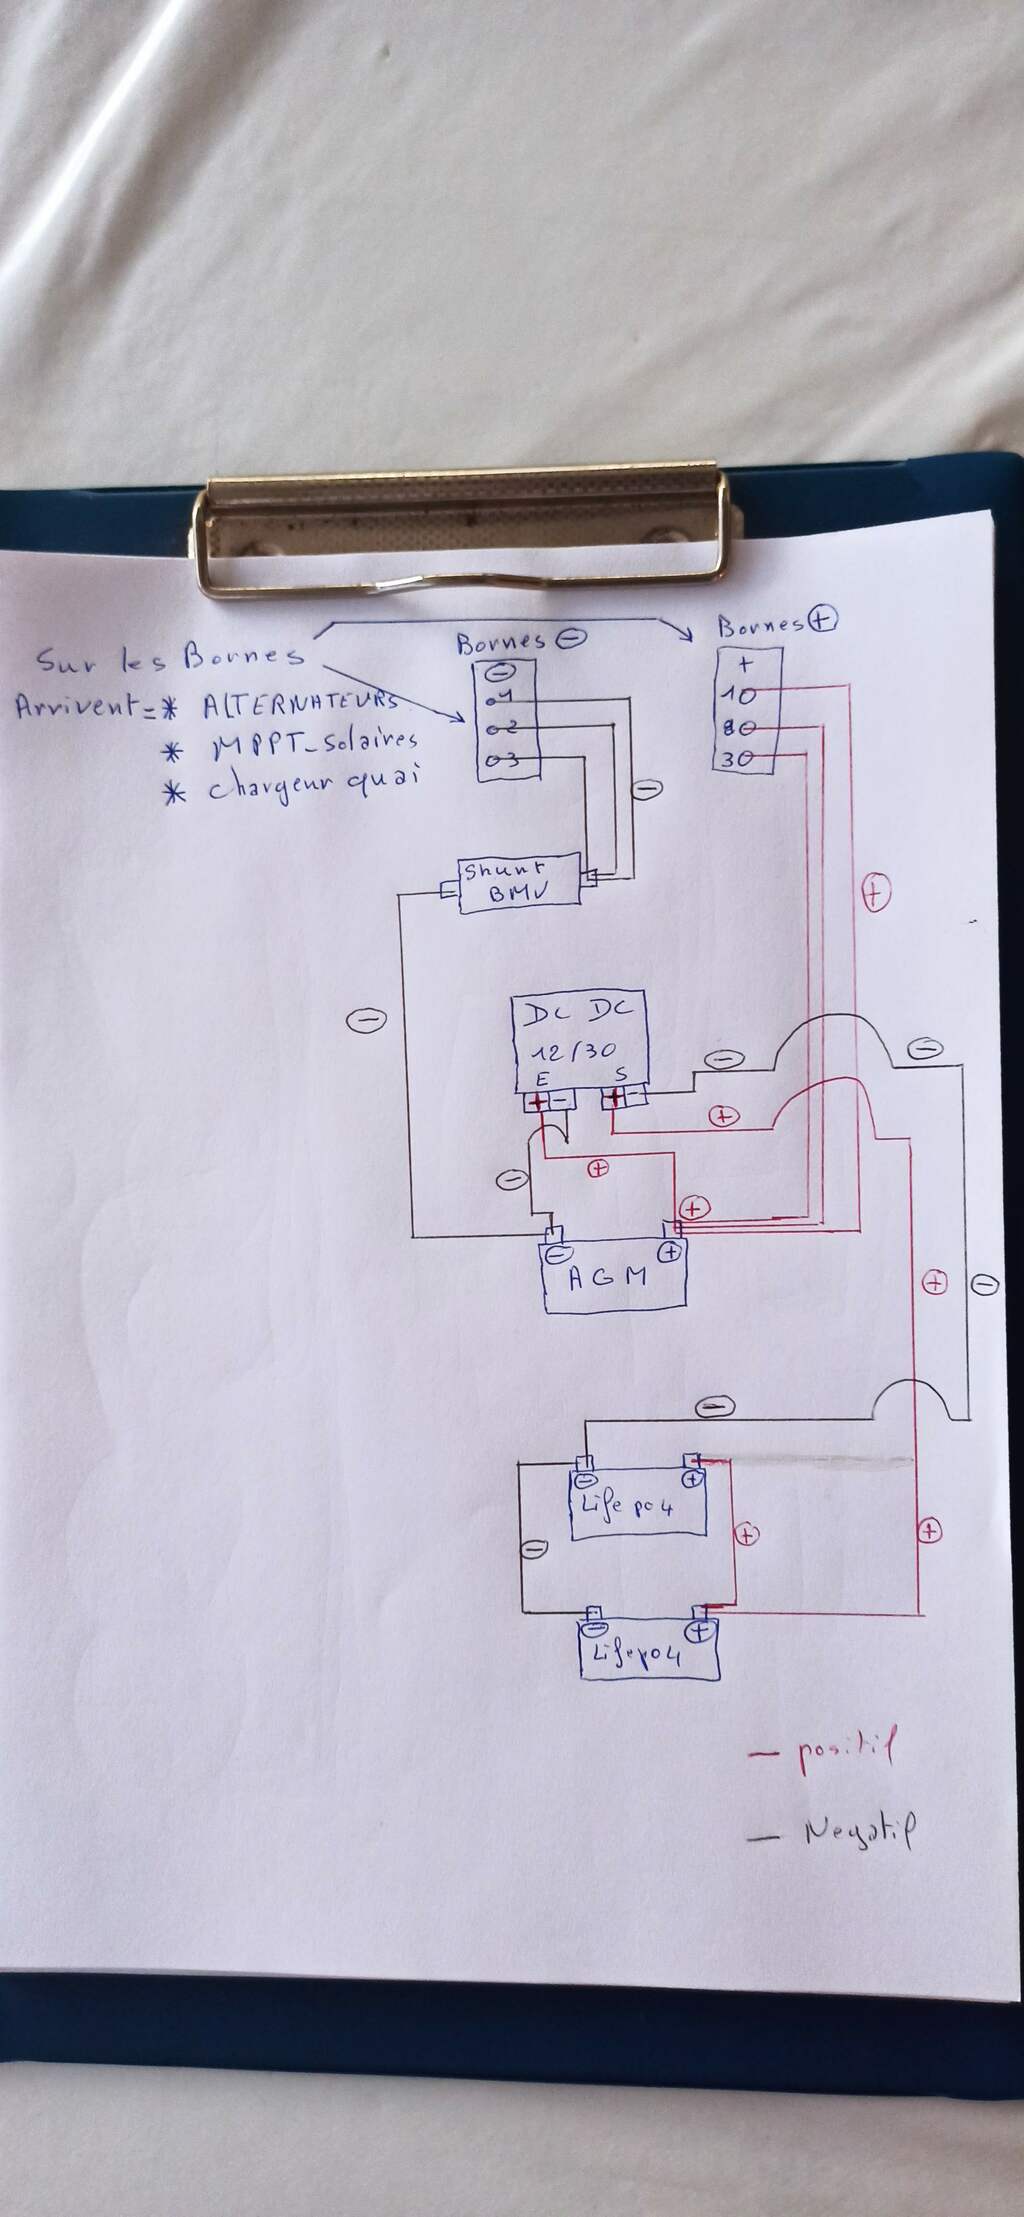 Sur les Bornes
Arrivent = * ALTERNATEURS
* MPPT-Solaires
* chargeur quai
Bornes ⊖
⊖
01
02
03
Bornes ⊕
+
10
80
30
⊖
⊕
Shunt
BMV
⊖
DC DC
12/30
E S
+ - + -
⊖ ⊖
⊕
⊖ ⊕
⊕
⊖ ⊕
AGM
⊕ ⊖
⊖
⊖ ⊕
Lifepo4
⊖ ⊕ ⊕
⊖ ⊕
Lifepo4
— positif
— Negatif